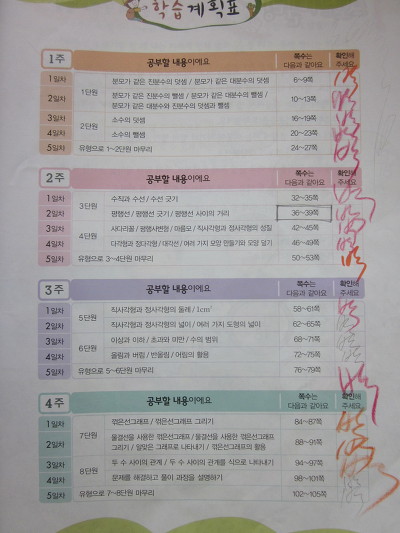 학습 계획표
1주 공부할 내용이에요 쪽수는 다음과 같아요 확인해 주세요
1일차 1단원 분모가 같은 진분수의 덧셈 / 분모가 같은 대분수의 덧셈 6~9쪽
2일차 분모가 같은 진분수의 뺄셈 / 분모가 같은 대분수의 뺄셈 / 10~13쪽
분모가 같은 대분수와 진분수의 덧셈과 뺄셈
3일차 2단원 소수의 덧셈 16~19쪽
4일차 소수의 뺄셈 20~23쪽
5일차 유형으로 1~2단원 마무리 24~27쪽
2주 공부할 내용이에요 쪽수는 다음과 같아요 확인해 주세요
1일차 3단원 수직과 수선 / 수선 긋기 32~35쪽
2일차 평행선 / 평행선 긋기 / 평행선 사이의 거리 36~39쪽
3일차 4단원 사다리꼴 / 평행사변형 / 마름모 / 직사각형과 정사각형의 성질 42~45쪽
4일차 다각형과 정다각형 / 대각선 / 여러 가지 모양 만들기와 모양 덮기 46~49쪽
5일차 유형으로 3~4단원 마무리 50~53쪽
3주 공부할 내용이에요 쪽수는 다음과 같아요 확인해 주세요
1일차 5단원 직사각형과 정사각형의 둘레 / 1cm² 58~61쪽
2일차 직사각형과 정사각형의 넓이 / 여러 가지 도형의 넓이 62~65쪽
3일차 6단원 이상과 이하 / 초과와 미만 / 수의 범위 68~71쪽
4일차 올림과 버림 / 반올림 / 어림의 활용 72~75쪽
5일차 유형으로 5~6단원 마무리 76~79쪽
4주 공부할 내용이에요 쪽수는 다음과 같아요 확인해 주세요
1일차 7단원 꺾은선그래프 / 꺾은선그래프 그리기 84~87쪽
2일차 물결선을 사용한 꺾은선그래프 / 물결선을 사용한 꺾은선그래프 88~91쪽
그리기 / 알맞은 그래프로 나타내기 / 꺾은선그래프의 활용
3일차 8단원 두 수 사이의 관계 / 두 수 사이의 관계를 식으로 나타내기 94~97쪽
4일차 문제를 해결하고 풀이 과정을 설명하기 98~101쪽
5일차 유형으로 7~8단원 마무리 102~105쪽